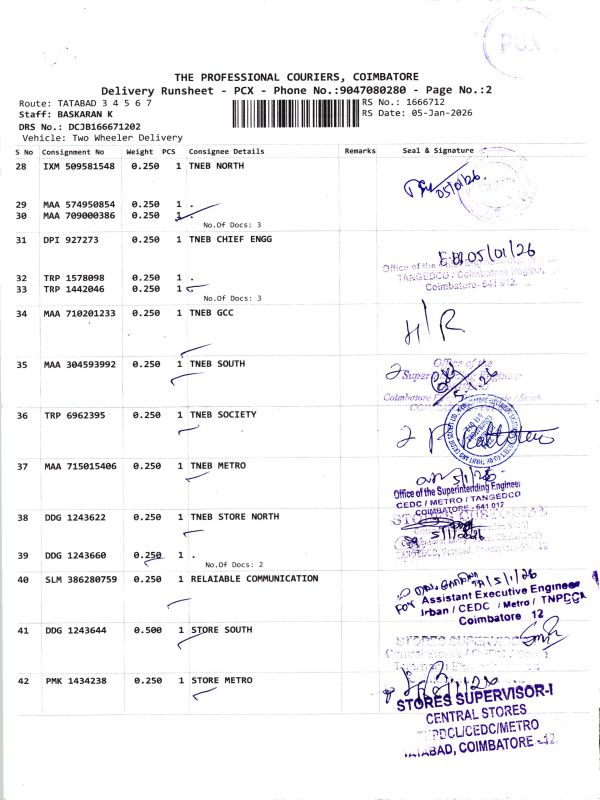 PCX
THE PROFESSIONAL COURIERS, COIMBATORE
Delivery Runsheet - PCX - Phone No.:9047080280 - Page No.:2
Route: TATABAD 3 4 5 6 7
RS No.: 1666712
Staff: BASKARAN K
RS Date: 05-Jan-2026
DRS No.: DCJB166671202
Vehicle: Two Wheeler Delivery
S No Consignment No Weight PCS Consignee Details Remarks Seal & Signature
28 IXM 509581548 0.250 1 TNEB NORTH
05/01/26.
29 MAA 574950854 0.250 1 .
30 MAA 709000386 0.250 1 .
No.Of Docs: 3
31 DPI 927273 0.250 1 TNEB CHIEF ENGG
05/01/26
Office of the
TANGEDCO / Coimbatore Region,
Coimbatore-641 012.
32 TRP 1578098 0.250 1 .
33 TRP 1442046 0.250 1
No.Of Docs: 3
34 MAA 710201233 0.250 1 TNEB GCC
H/R
35 MAA 304593992 0.250 1 TNEB SOUTH
2
Office of the
5.1.26
36 TRP 6962395 0.250 1 TNEB SOCIETY
2
37 MAA 715015406 0.250 1 TNEB METRO
5/1/26
Office of the Superintending Engineer
CEDC / METRO / TANGEDCO
COIMBATORE - 641 012
38 DDG 1243622 0.250 1 TNEB STORE NORTH
5/1/2026
39 DDG 1243660 0.250 1 .
No.Of Docs: 2
40 SLM 386280759 0.250 1 RELAIABLE COMMUNICATION
5/1/26
FOR Assistant Executive Engineer
Urban / CEDC / Metro / TNPDCL
Coimbatore 12
41 DDG 1243644 0.500 1 STORE SOUTH
42 PMK 1434238 0.250 1 STORE METRO
STORES SUPERVISOR-I
CENTRAL STORES
TNPDCL/CEDC/METRO
TATABAD, COIMBATORE -12.